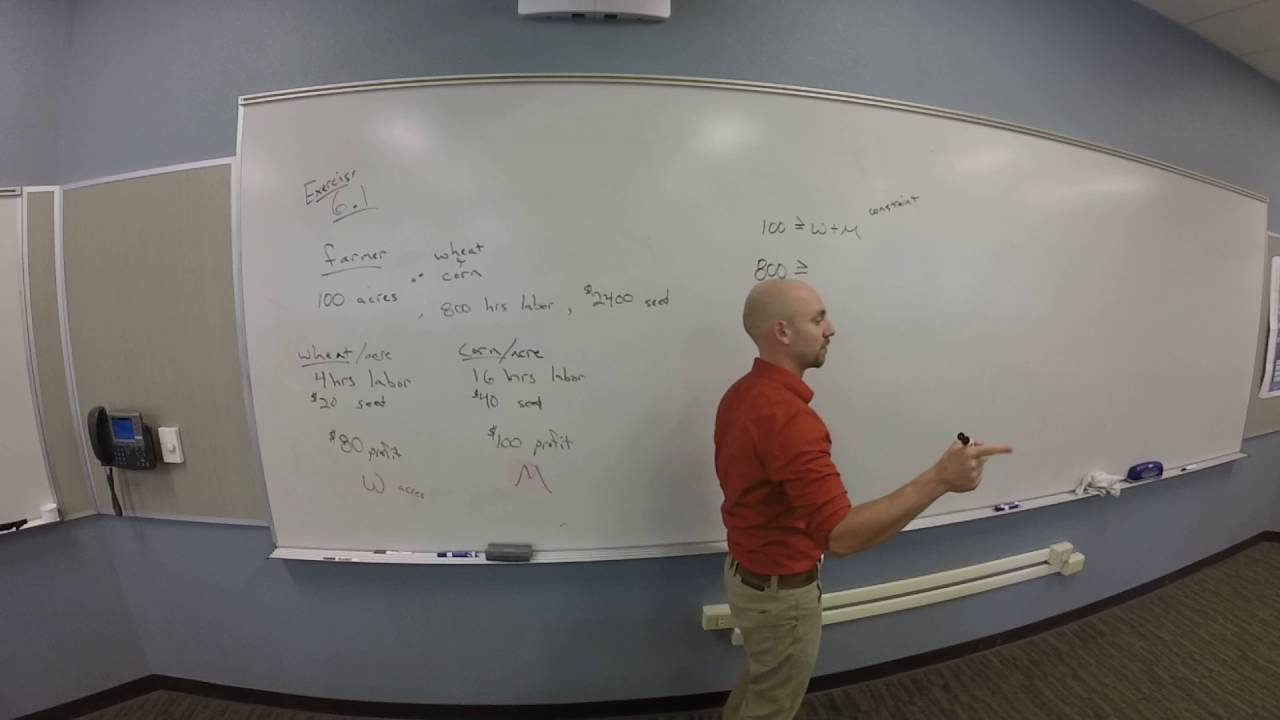 Exercise
6.1
farmer
wheat
+
corn
100 acres , 800 hrs labor , $2400 seed
wheat/acre
4 hrs labor
$20 seed
$80 profit
W acres
corn/acre
16 hrs labor
$40 seed
$100 profit
M
100 ≥ W+M constraint
800 ≥